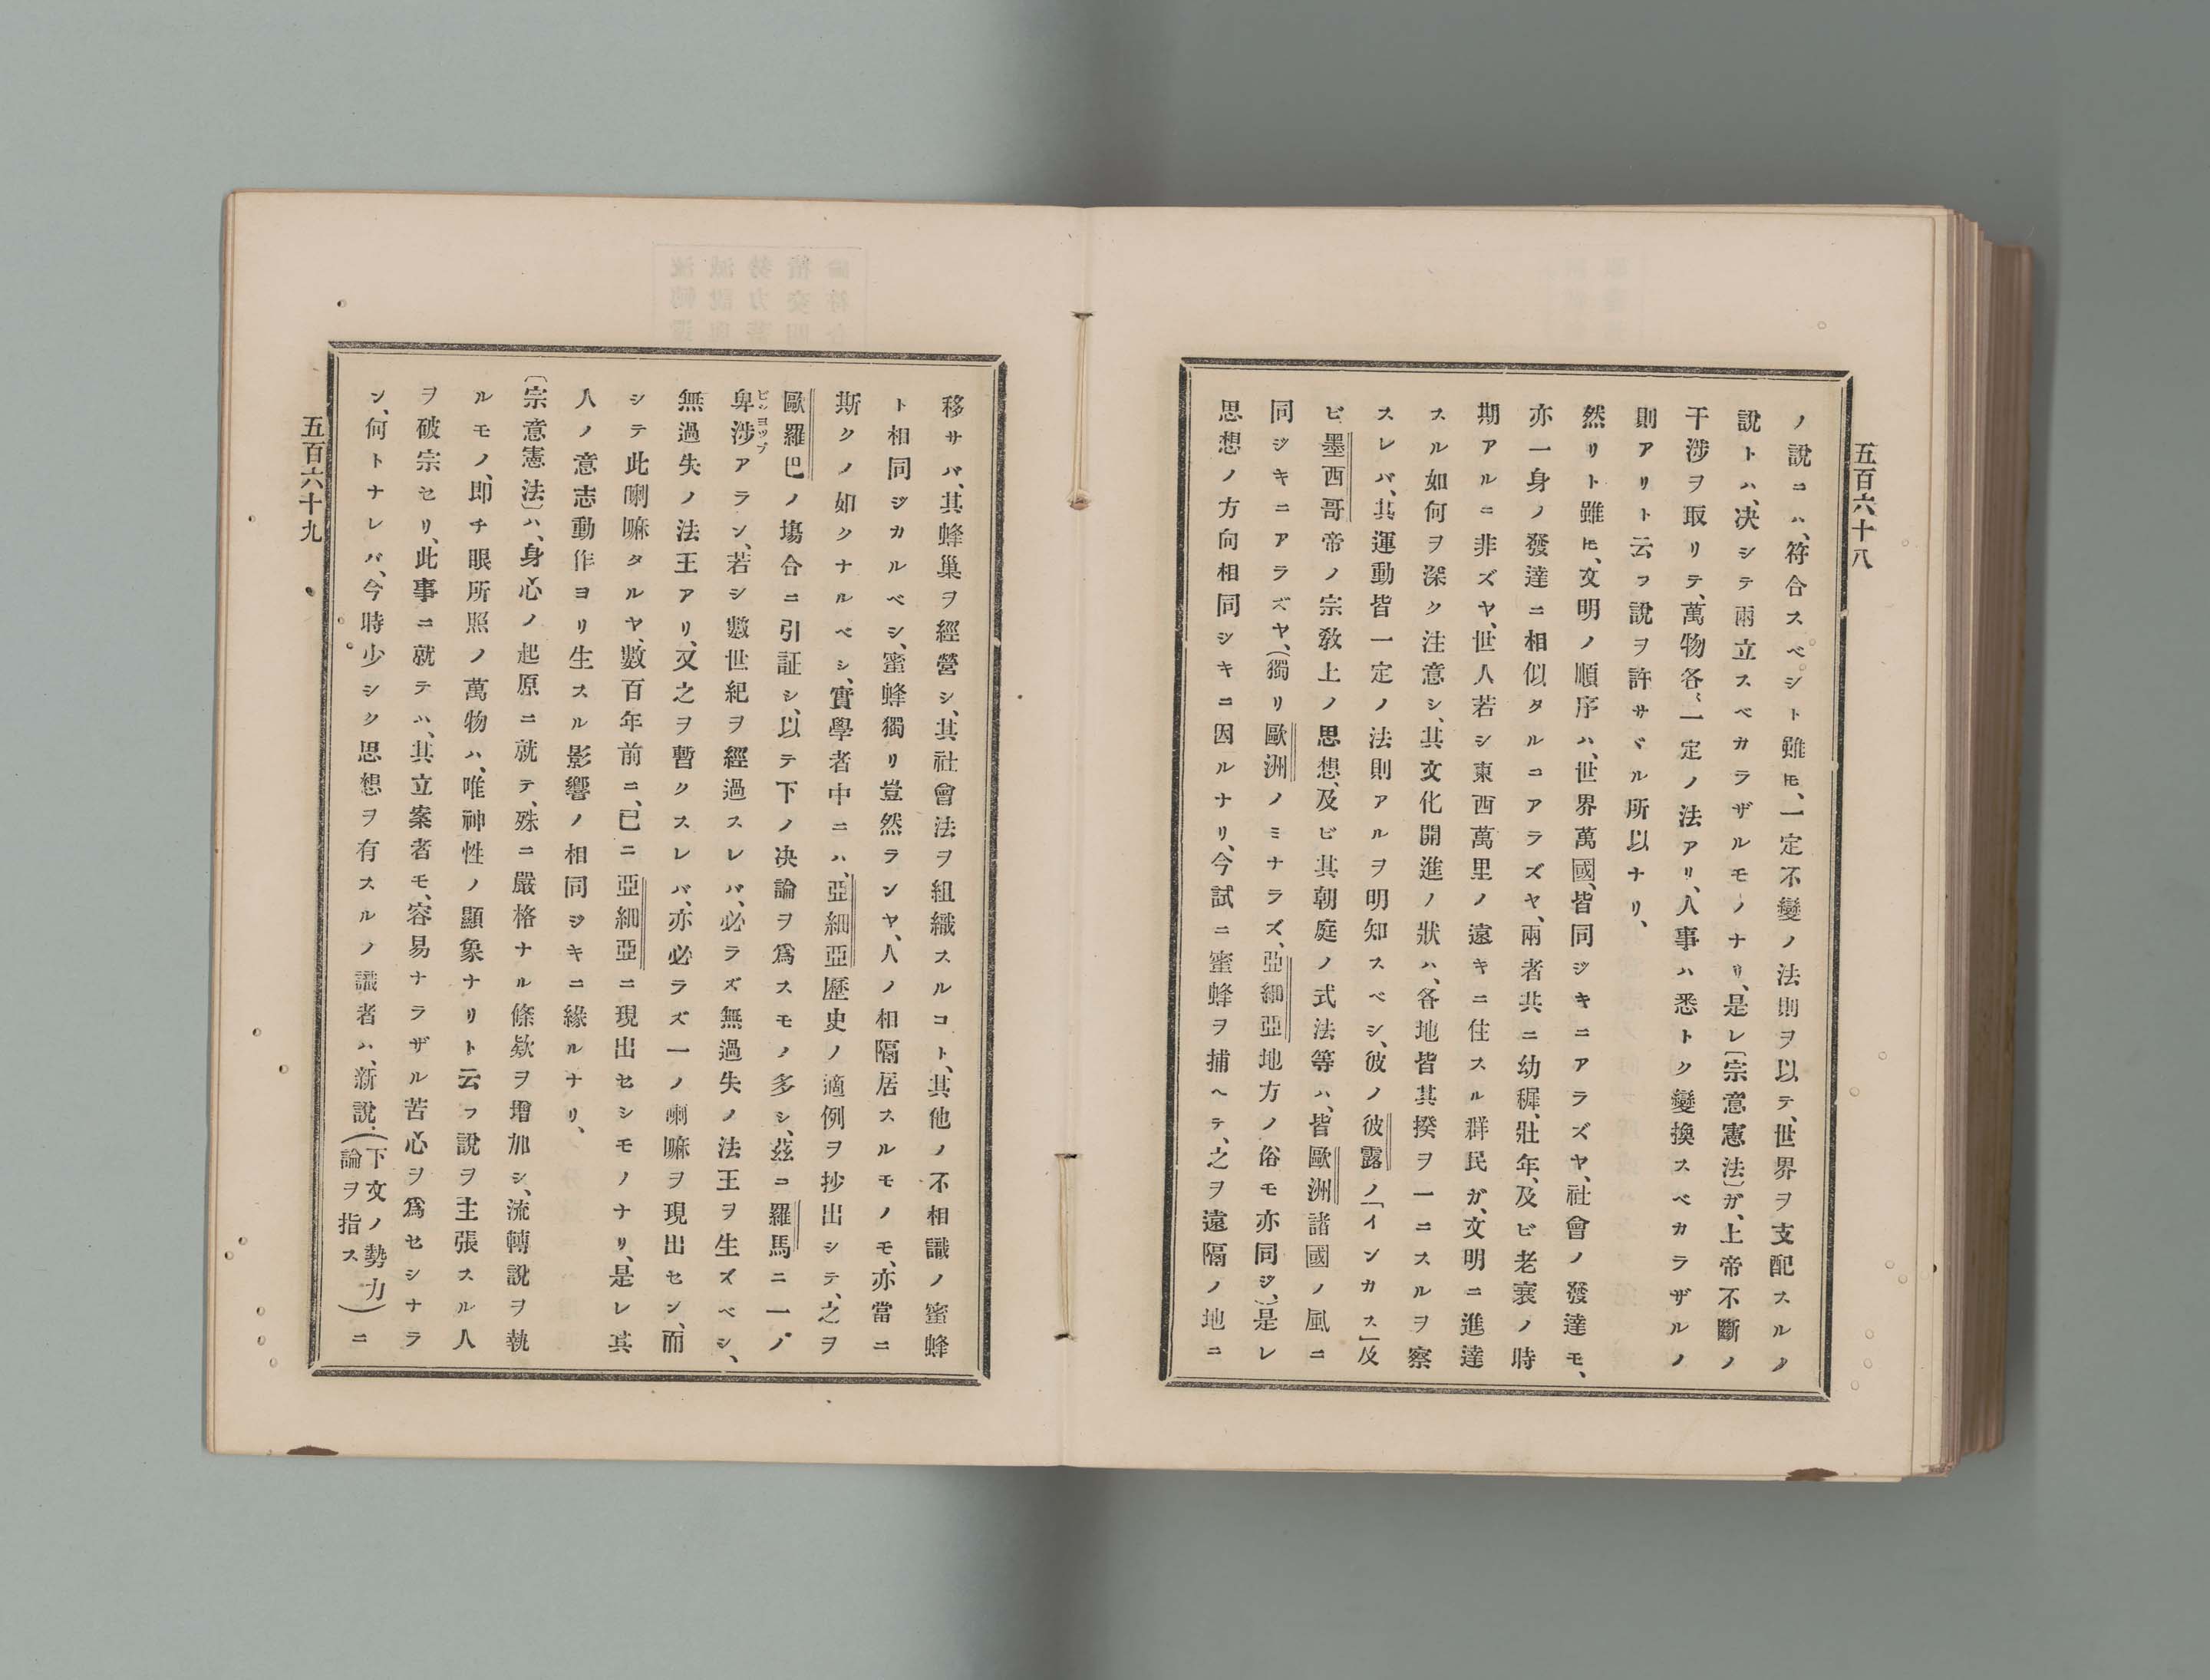 五百六十八
ノ說ニハ、符合スベシト雖𪜈、一定不變ノ法則ヲ以テ、世界ヲ支配スルノ
說トハ、决シテ兩立スベカラザルモノナリ、是レ〔宗意憲法〕ガ、上帝不斷ノ
干涉ヲ取リテ、萬物各〻一定ノ法アリ、人事ハ悉トク變換スベカラザルノ
則アリト云フ說ヲ許サヾル所以ナリ、
然リト雖𪜈、文明ノ順序ハ、世界萬國、皆同ジキニアラズヤ、社會ノ發達モ、
亦一身ノ發達ニ相似タルコアラズヤ、兩者共ニ幼穉、壯年、及ビ老衰ノ時
期アルニ非ズヤ、世人若シ東西萬里ノ遠キニ住スル群民ガ、文明ニ進達
スル如何ヲ深ク注意シ、其文化開進ノ狀ハ、各地皆其揆ヲ一ニスルヲ察
スレバ、其運動皆一定ノ法則アルヲ明知スベシ、彼ノ彼露ノ「インカス」及
ビ墨西哥帝ノ宗敎上ノ思想、及ビ其朝庭ノ式法等ハ、皆歐洲諸國ノ風ニ
同ジキニアラズヤ、（獨リ歐洲ノミナラズ、亞細亞地方ノ俗モ亦同ジ、）是レ
思想ノ方向相同シキニ因ルナリ、今試ニ蜜蜂ヲ捕ヘテ、之ヲ遠隔ノ地ニ
移サバ、其蜂巢ヲ經營シ、其社會法ヲ組織スルコト、其他ノ不相識ノ蜜蜂
ト相同ジカルベシ、蜜蜂獨リ豈然ランヤ、人ノ相隔居スルモノモ、亦當ニ
斯クノ如クナルベシ、實學者中ニハ、亞細亞歷史ノ適例ヲ抄出シテ、之ヲ
歐羅巴ノ塲合ニ引証シ、以テ下ノ决論ヲ爲スモノ多シ、茲ニ羅馬ニ一ノ
卑涉アラン、若シ數世紀ヲ經過スレバ、必ラズ無過失ノ法王ヲ生ズベシ、
ビショップ
無過失ノ法王アリ、又之ヲ暫クスレバ、亦必ラズ一ノ喇嘛ヲ現出セン、而
シテ此喇嘛タルヤ、數百年前ニ、已ニ亞細亞ニ現出セシモノナリ、是レ其
人ノ意志動作ヨリ生スル影響ノ相同ジキニ緣ルナリ、
〔宗意憲法〕ハ、身心ノ起原ニ就テ、殊ニ嚴格ナル條欵ヲ增加シ、流轉說ヲ執
ルモノ、卽チ眼所照ノ萬物ハ、唯神性ノ顯象ナリト云フ說ヲ主張スル人
ヲ破宗セリ、此事ニ就テハ、其立案者モ、容易ナラザル苦心ヲ爲セシナラ
ン、何トナレバ、今時少シク思想ヲ有スルノ識者ハ、新說、（下文ノ勢力論ヲ指ス）ニ
五百六十九